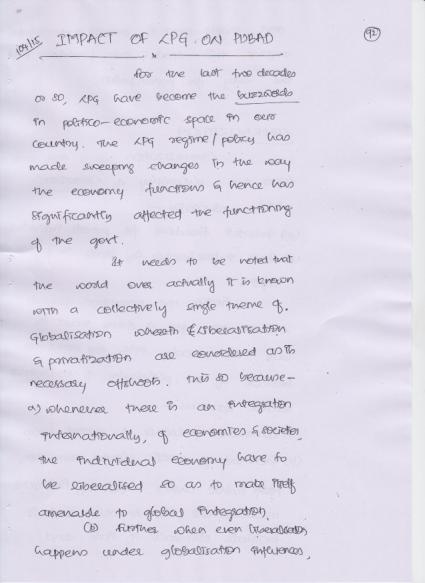 104/15 IMPACT OF LPG ON PUBAD 92
for the last two decades
or so, LPG have become the buzzwords
in politico-economic space in our
country. The LPG regime/policy has
made sweeping changes in the way
the economy functions & hence has
significantly affected the functioning
of the govt.
It needs to be noted that
the world over actually it is known
with a collectively single theme of.
Globalisation wherein Liberalisation
& privatization are considered as its
necessary offshoots. This so because-
a) whenever there is an integration
internationally, of economies & societies,
the individual economy have to
be liberalised so as to make itself
amenable to global integration.
(b) further when even liberalisation
happens under globalisation influences,